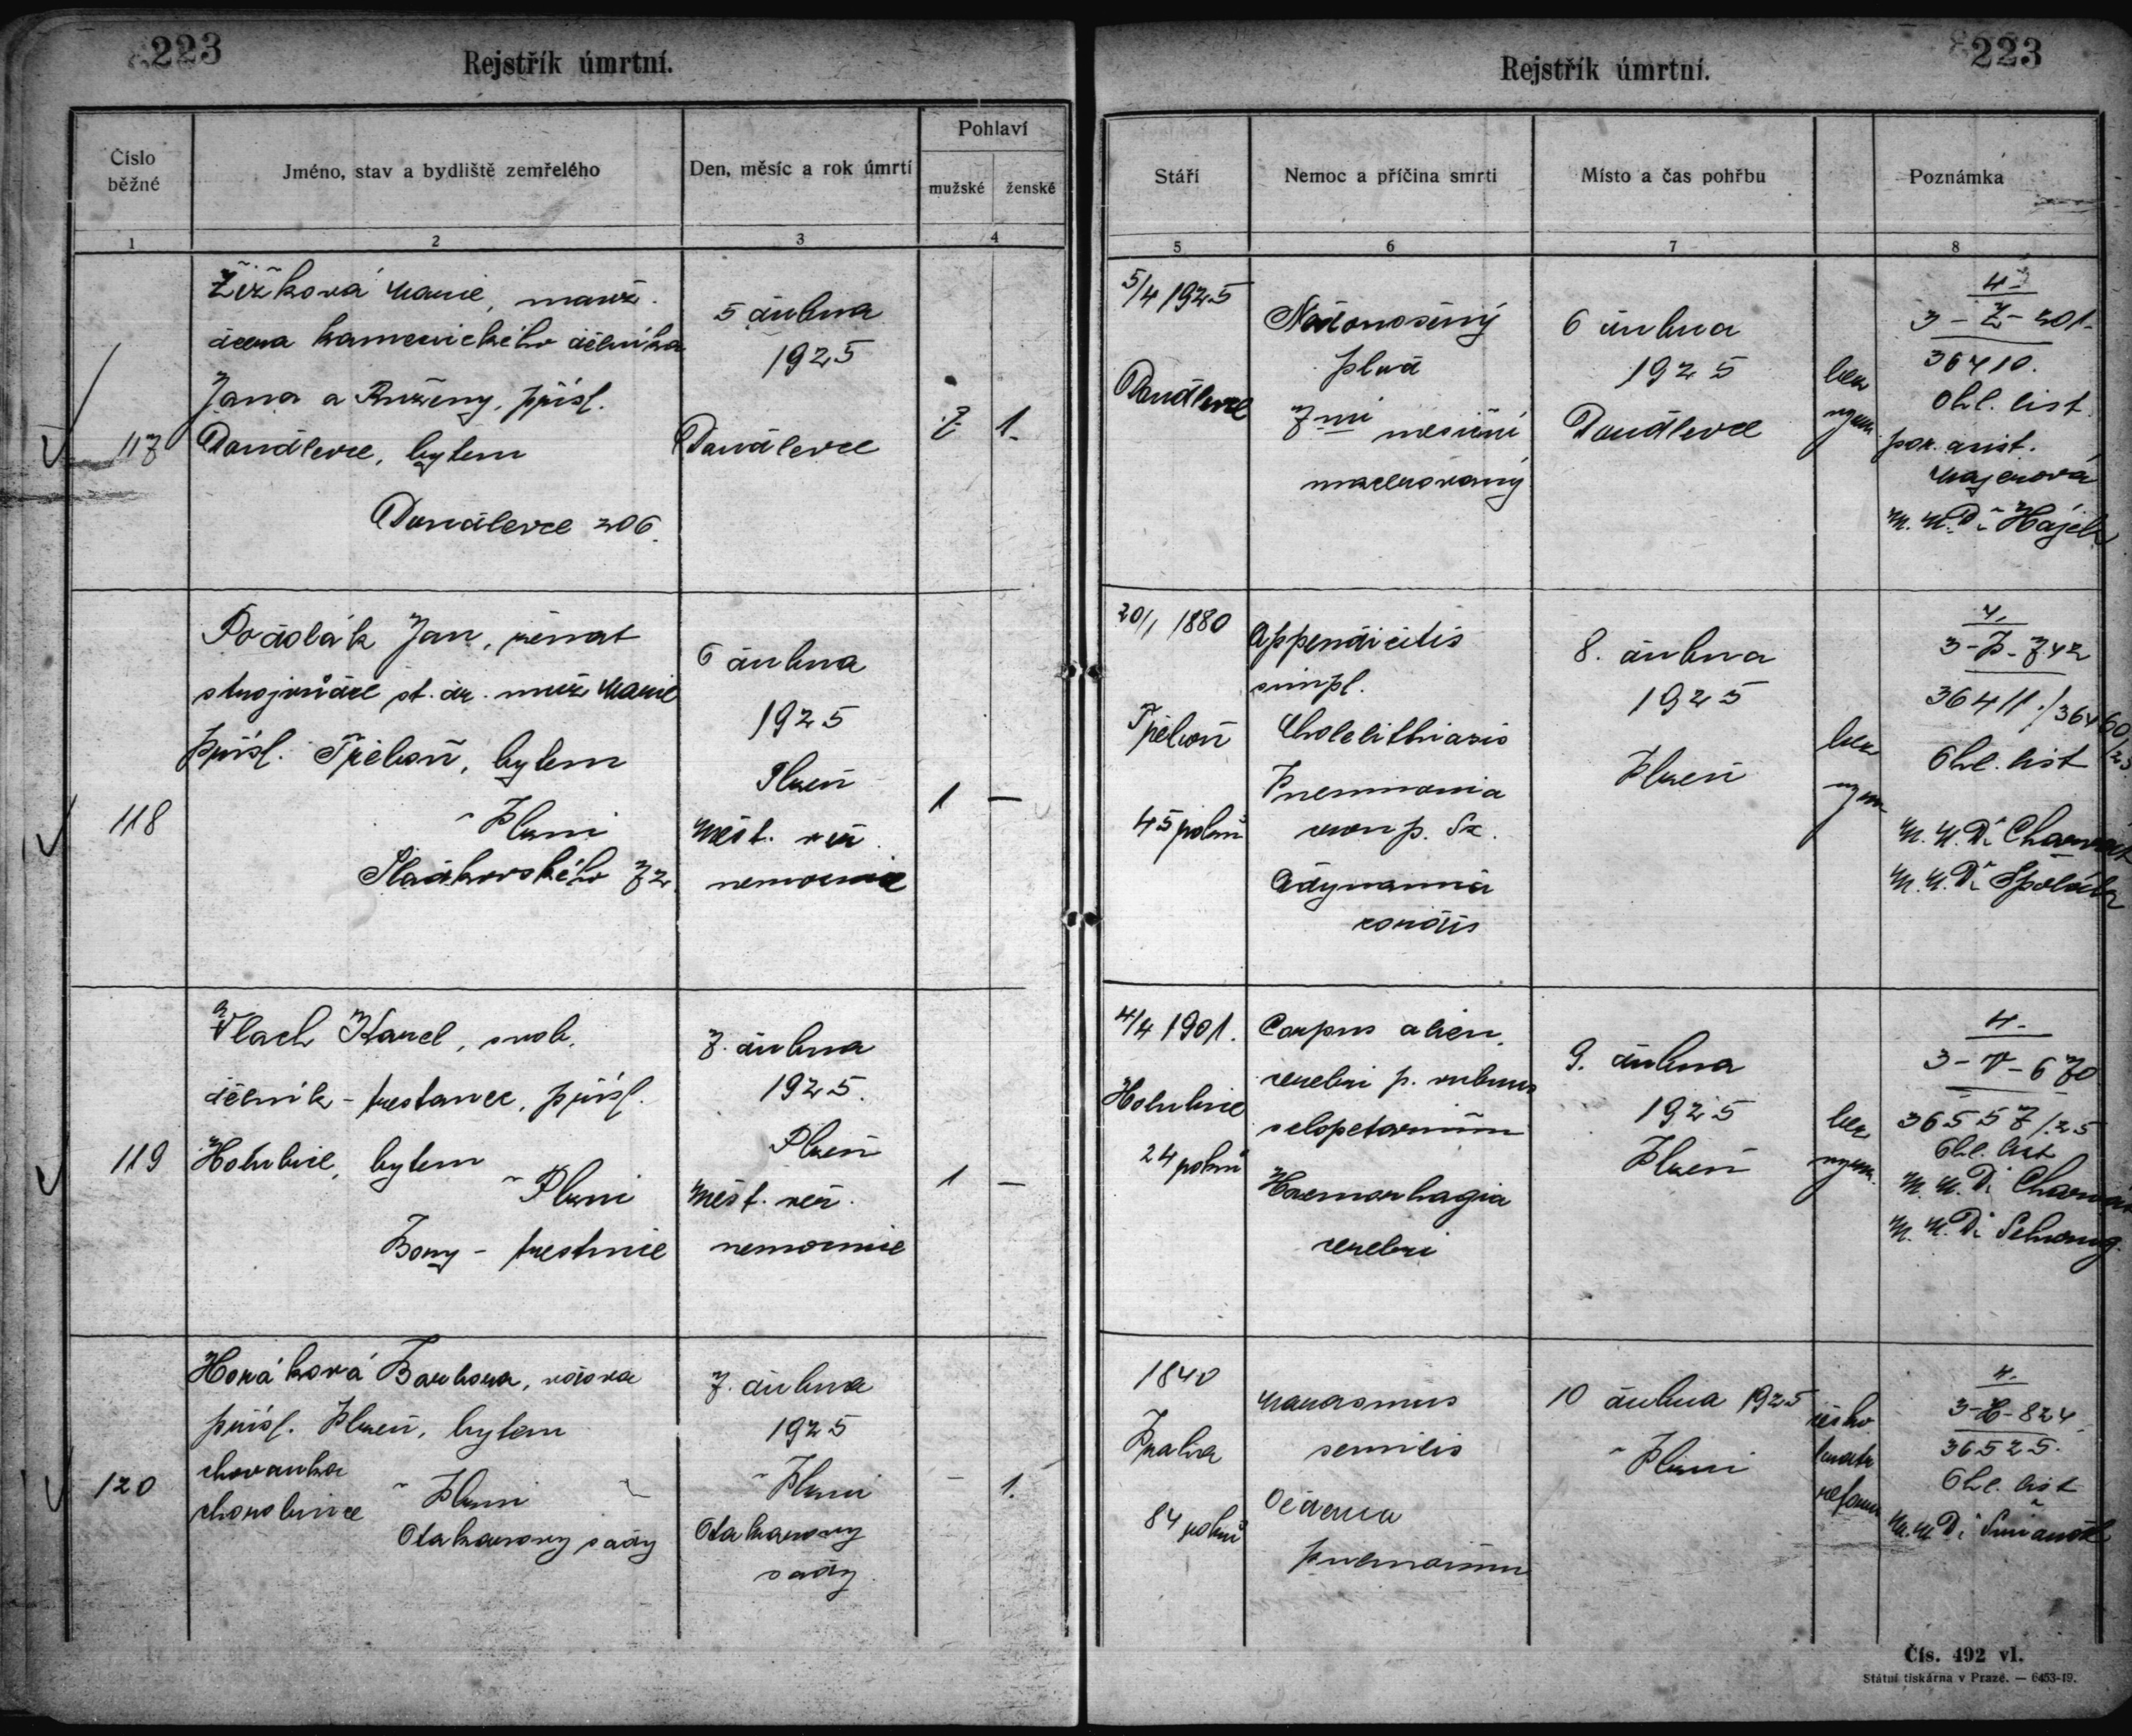 223
Rejstřík úmrtní.
Číslo běžné
Jméno, stav a bydliště zemřelého
Den, měsíc a rok úmrtí
Pohlaví
mužské
ženské
1
2
3
4
117
Žižková Marie, manž.
dcera kamenického dělníka
Jana a Růženy, přísl.
Doudlevce, bytem
Doudlevce 206.
5 dubna
1925
Doudlevce
1.
118
Podolák Jan, ženat
strojvůdce st. dr. muž Marie
přísl. Třeboň, bytem
v Plzni
Sladkovského 72.
6 dubna
1925
Plzeň
Měst. veř.
nemocnice
1 —
119
Vlach Karel, svob.
dělník - trestanec, přísl.
Holubice, bytem
v Plzni
Bory - trestnice
7. dubna
1925.
Plzeň
Měst. veř.
nemocnice
1 —
120
Horáková Barbora, vdova
přísl. Plzeň, bytem
chovanka
chorobince
v Plzni
Otakarovy sady
7. dubna
1925
v Plzni
Otakarovy
sady.
— 1.
223
Rejstřík úmrtní.
Stáří
Nemoc a příčina smrti
Místo a čas pohřbu
Poznámka
5
6
7
8
5/4 1925
Doudlevce
Nedonošený
plod
7mi měsíční
macerovaný
6 dubna
1925
Doudlevce
bez
vyzn.
4.
3 - Ž - 201.
36410.
Ohl. list.
por. asist.
Majerová
M.U.Dr Hájek
20/1 1880
Třeboň
45 roků
Appendicitis
simpl.
Cholelithiasis
Pneumonia
Adynamia
cordis
8. dubna
1925
Plzeň
bez
vyzn.
4.
3 - P - 742
36411./36460/25
Ohl. list
M.U.Dr Charvát
M.U.Dr Špolák
4/4 1901.
Holubice
24 roků
Corpus alien.
cerebri p. vulnus
sclopetarium
Haemorrhagia
cerebri
9. dubna
1925
Plzeň
bez
vyzn.
4.
3 - V - 670
36557/.25
Ohl. list
M.U.Dr Charvát
M.U.Dr
1840
Praha
84 roků
Marasmus
senilis
Oedema
pulmonum
10 dubna 1925
v Plzni
česko
bratr.
reform.
4.
3 - H - 824
36525.
Ohl. list
M.U.Dr
Čís. 492 vl.
Státní tiskárna v Praze. — 6453-19.